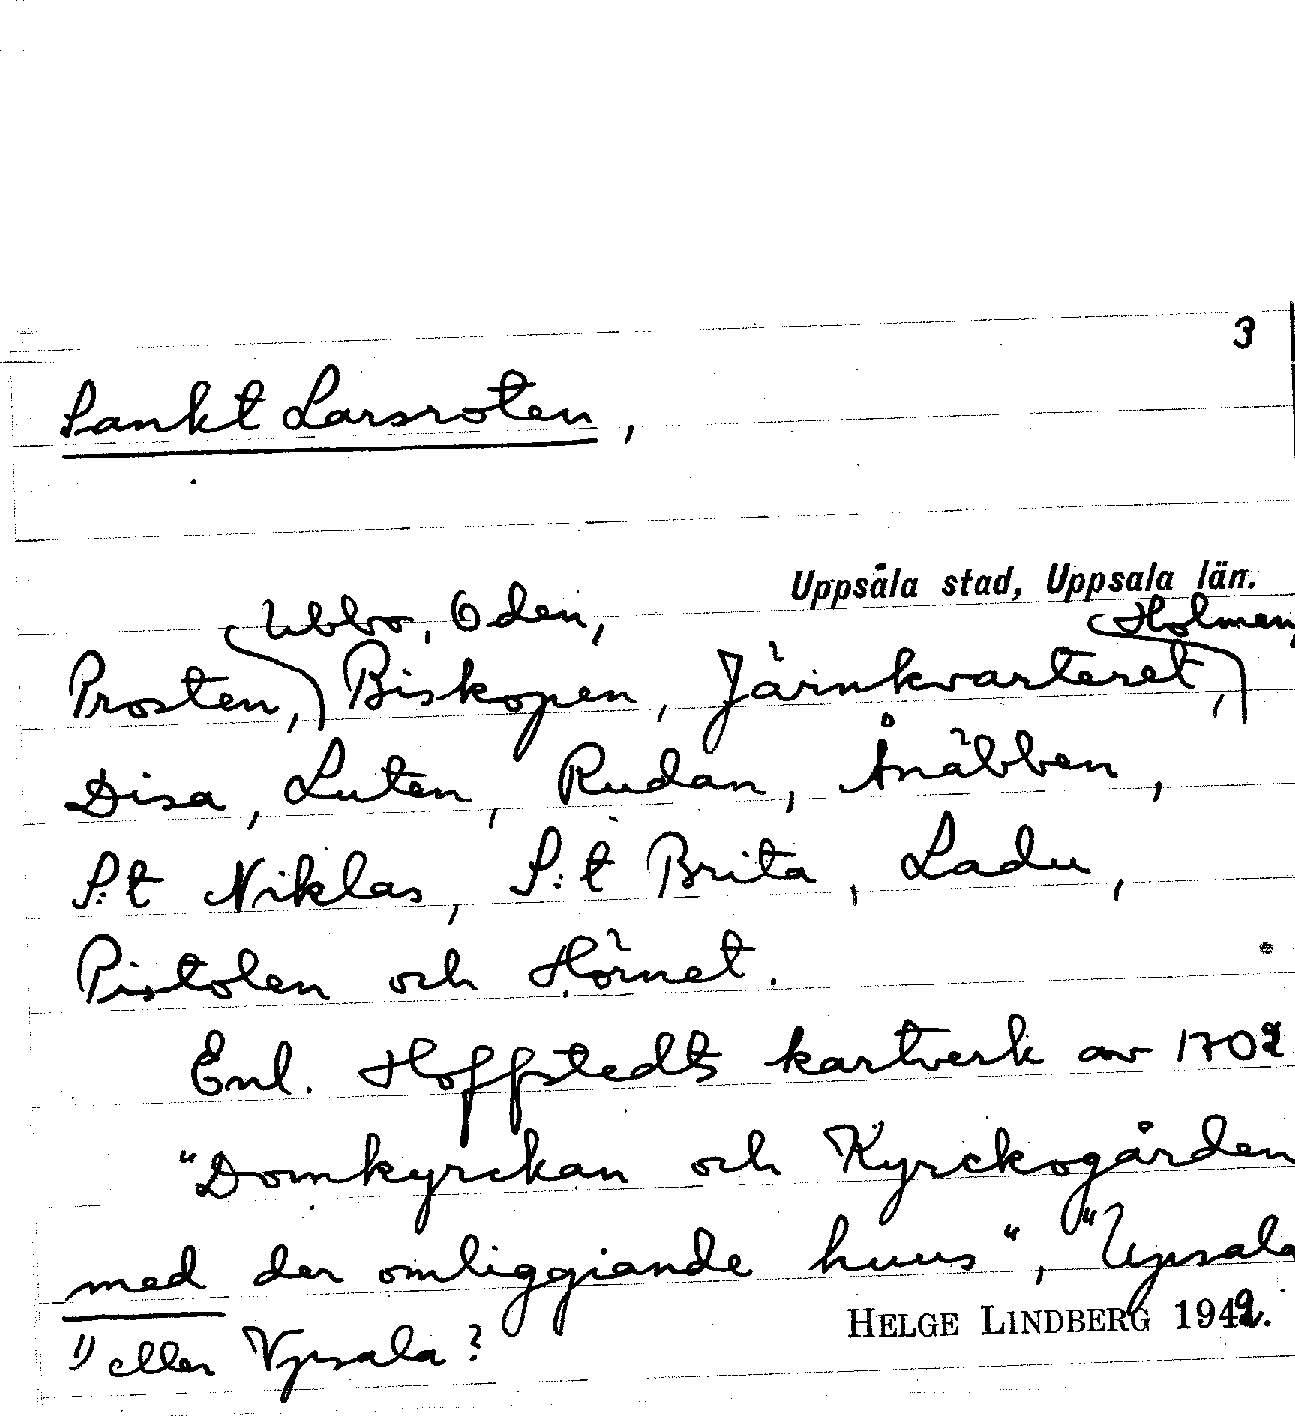 3
Sankt Larsroten,
Uppsala stad, Uppsala län.
Ubbo, Oden, Holmen,
Prosten, Biskopen, Järnkvarteret,
Disa, Luten, Rudan, Ånäbben,
S:t Niklas, S:t Brita, Ladu,
Pistolen och Hörnet.
Enl. Hoffstedts kartverk av 1702
"Domkyrckan och Kyrckogården
med der omliggiande huus", "Upsala
HELGE LINDBERG 1942.
1) eller Vpsala?